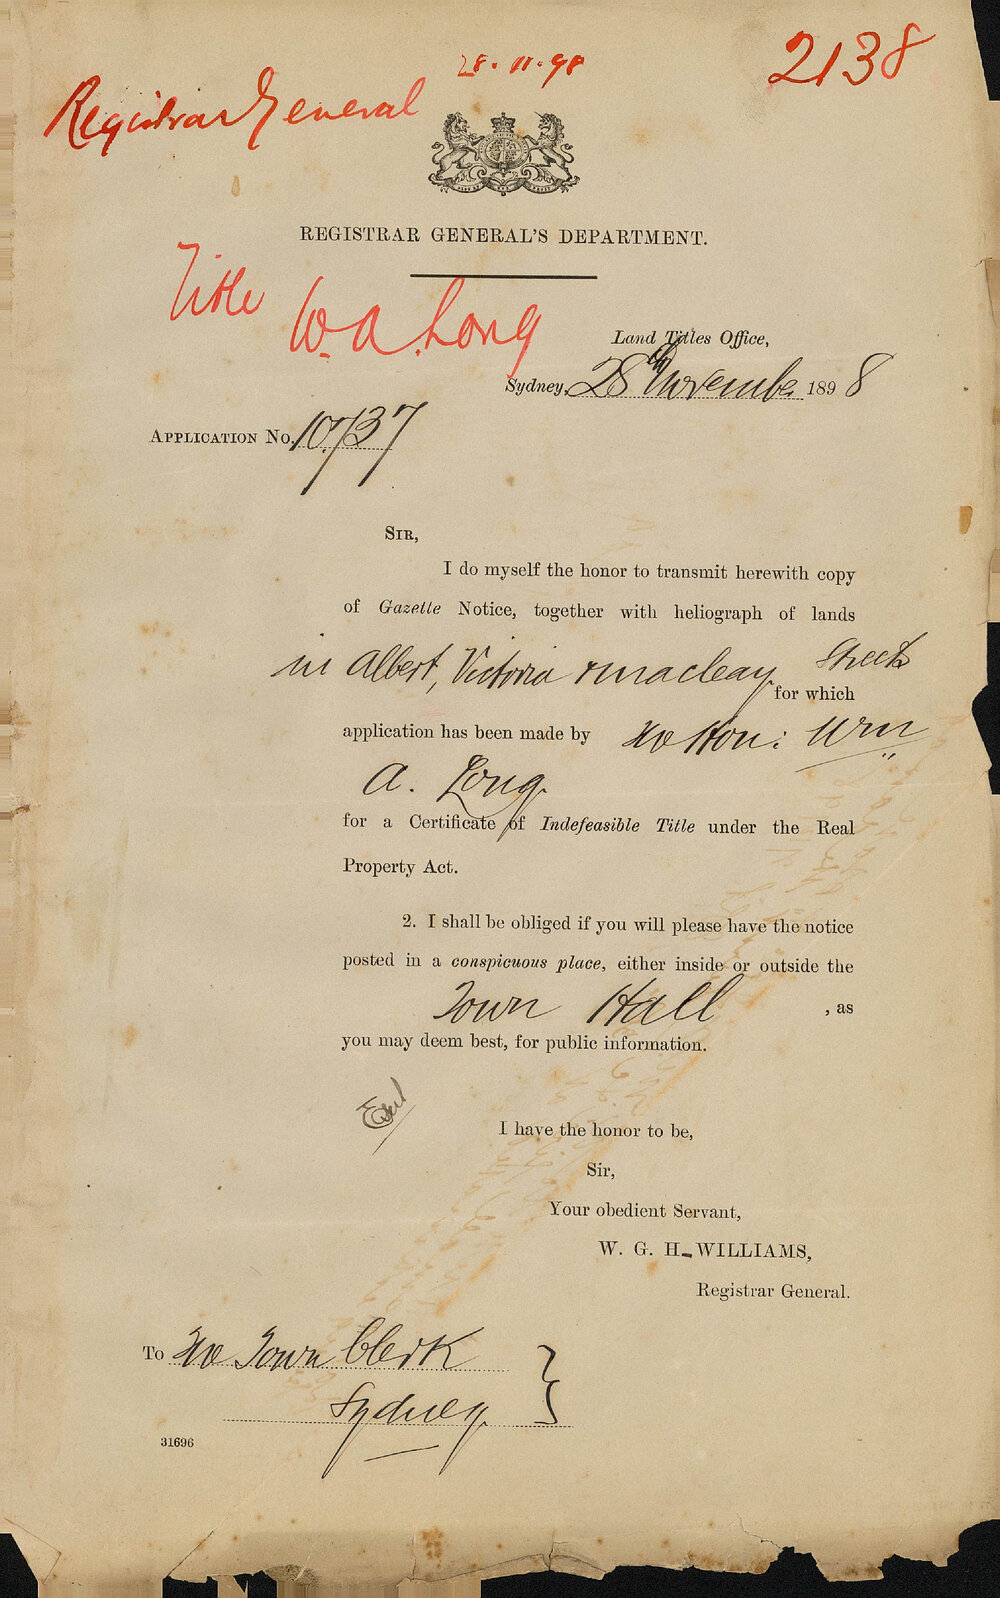 28.11.98
2138
Registrar General
REGISTRAR GENERAL'S DEPARTMENT.
Title W. A. Long
Land Titles Office,
Sydney, 28th November 1898
APPLICATION No. 10737
SIR,
I do myself the honor to transmit herewith copy
of Gazette Notice, together with heliograph of lands
in Albert, Victoria & Macleay Streets
for which
application has been made by The Hon: Wm
A. Long
for a Certificate of Indefeasible Title under the Real
Property Act.
2. I shall be obliged if you will please have the notice
posted in a conspicuous place, either inside or outside the
Town Hall , as
you may deem best, for public information.
I have the honor to be,
Sir,
Your obedient Servant,
W. G. H. WILLIAMS,
Registrar General.
To The Town Clerk
Sydney
31696